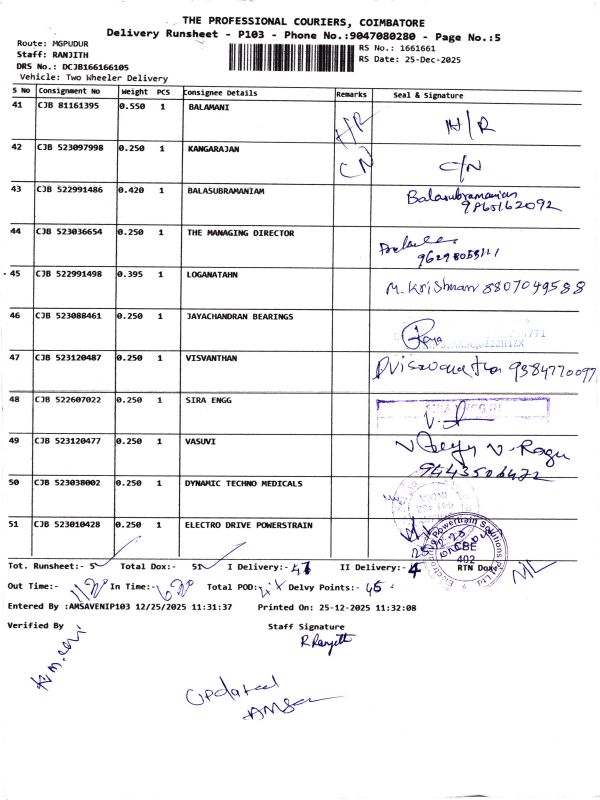 THE PROFESSIONAL COURIERS, COIMBATORE
Delivery Runsheet - P103 - Phone No.:9047080280 - Page No.:5
Route: MGPUDUR
Staff: RANJITH
DRS No.: DCJB166166105
Vehicle: Two Wheeler Delivery
RS No.: 1661661
RS Date: 25-Dec-2025
S No Consignment No Weight PCS Consignee Details Remarks Seal & Signature
41 CJB 81161395 0.550 1 BALAMANI H/R H/R
42 CJB 523097998 0.250 1 KANGARAJAN C/N C/N
43 CJB 522991486 0.420 1 BALASUBRAMANIAM Balasubramanian
9865162092
44 CJB 523036654 0.250 1 THE MANAGING DIRECTOR
45 CJB 522991498 0.395 1 LOGANATAHN M. Krishnan 8807049588
46 CJB 523088461 0.250 1 JAYACHANDRAN BEARINGS
47 CJB 523120487 0.250 1 VISVANTHAN 9384770097
48 CJB 522607022 0.250 1 SIRA ENGG
49 CJB 523120477 0.250 1 VASUVI V. Ragu
9443506472
50 CJB 523038002 0.250 1 DYNAMIC TECHNO MEDICALS
51 CJB 523010428 0.250 1 ELECTRO DRIVE POWERSTRAIN
Powertrain Solutions Pvt Ltd
CBE
402
Tot. Runsheet:- 5 Total Dox:- 51 I Delivery:- 47 II Delivery:- 4 RTN Dox:- NIL
Out Time:- 11:20 In Time:- 6:20 Total POD:- 4 Delvy Points:- 45
Entered By :AMSAVENIP103 12/25/2025 11:31:37 Printed On: 25-12-2025 11:32:08
Verified By Staff Signature
R Ranjith
Updated